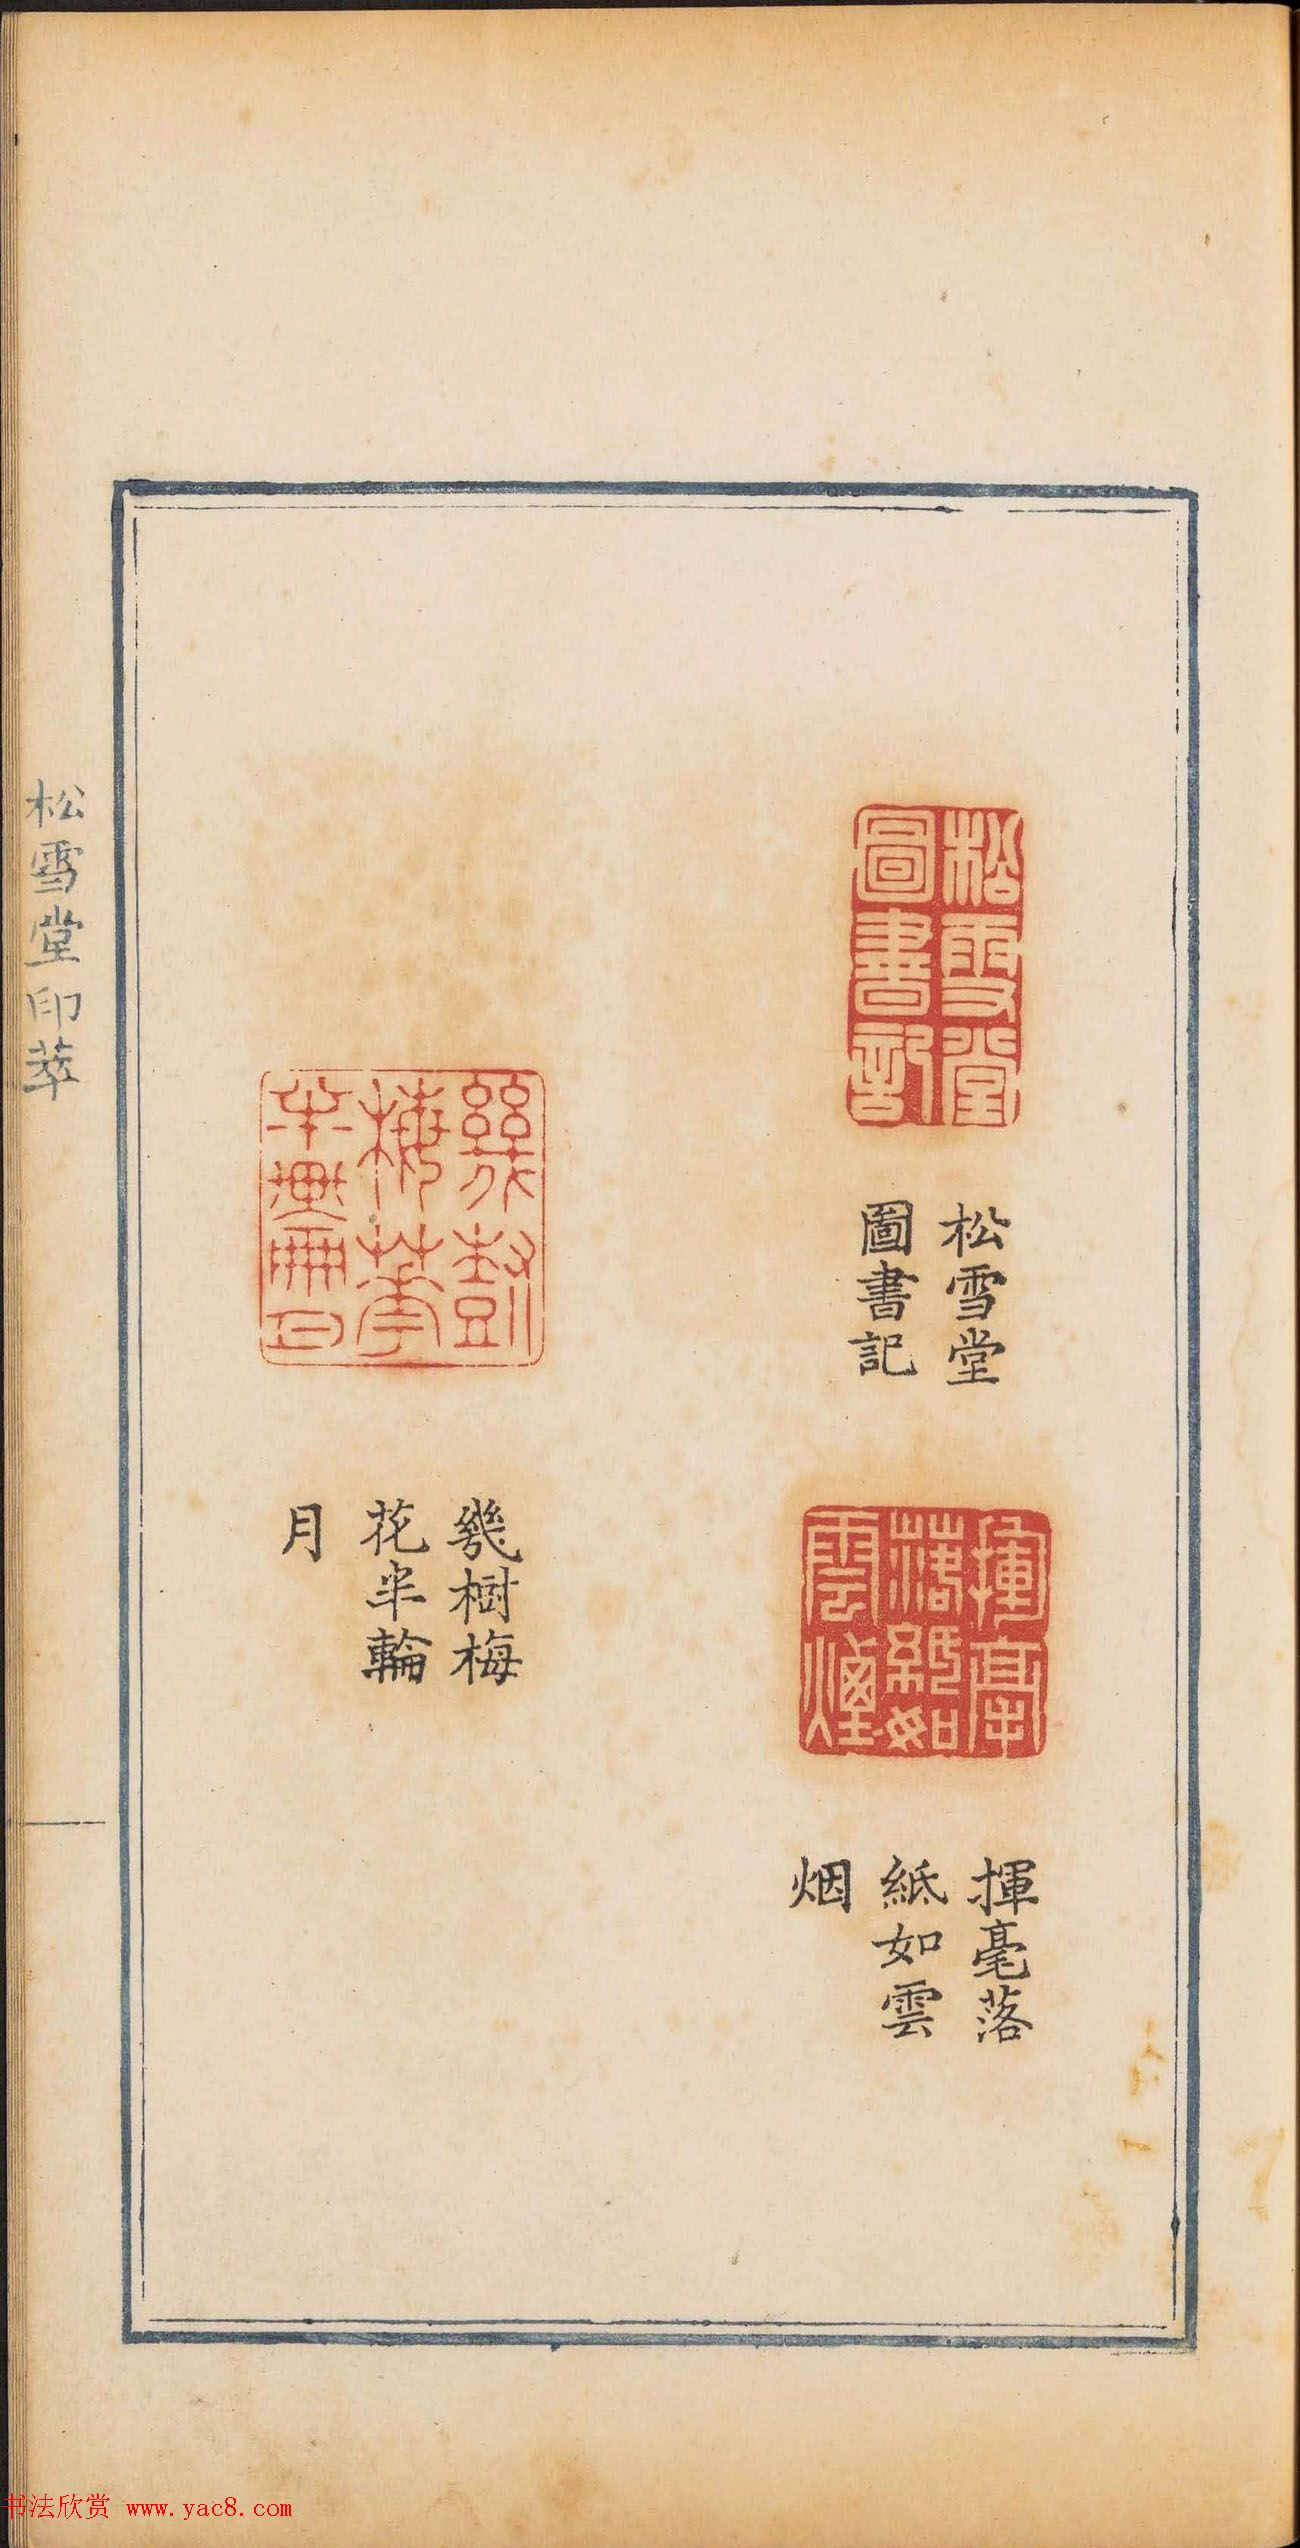 松雪堂
圖書記
松雪堂
圖書記
揮毫
落紙如
雲煙
揮毫落
紙如雲
烟
幾樹
梅華
半輪月
幾樹梅
花半輪
月
松雪堂印萃
书法欣赏 www.yac8.com